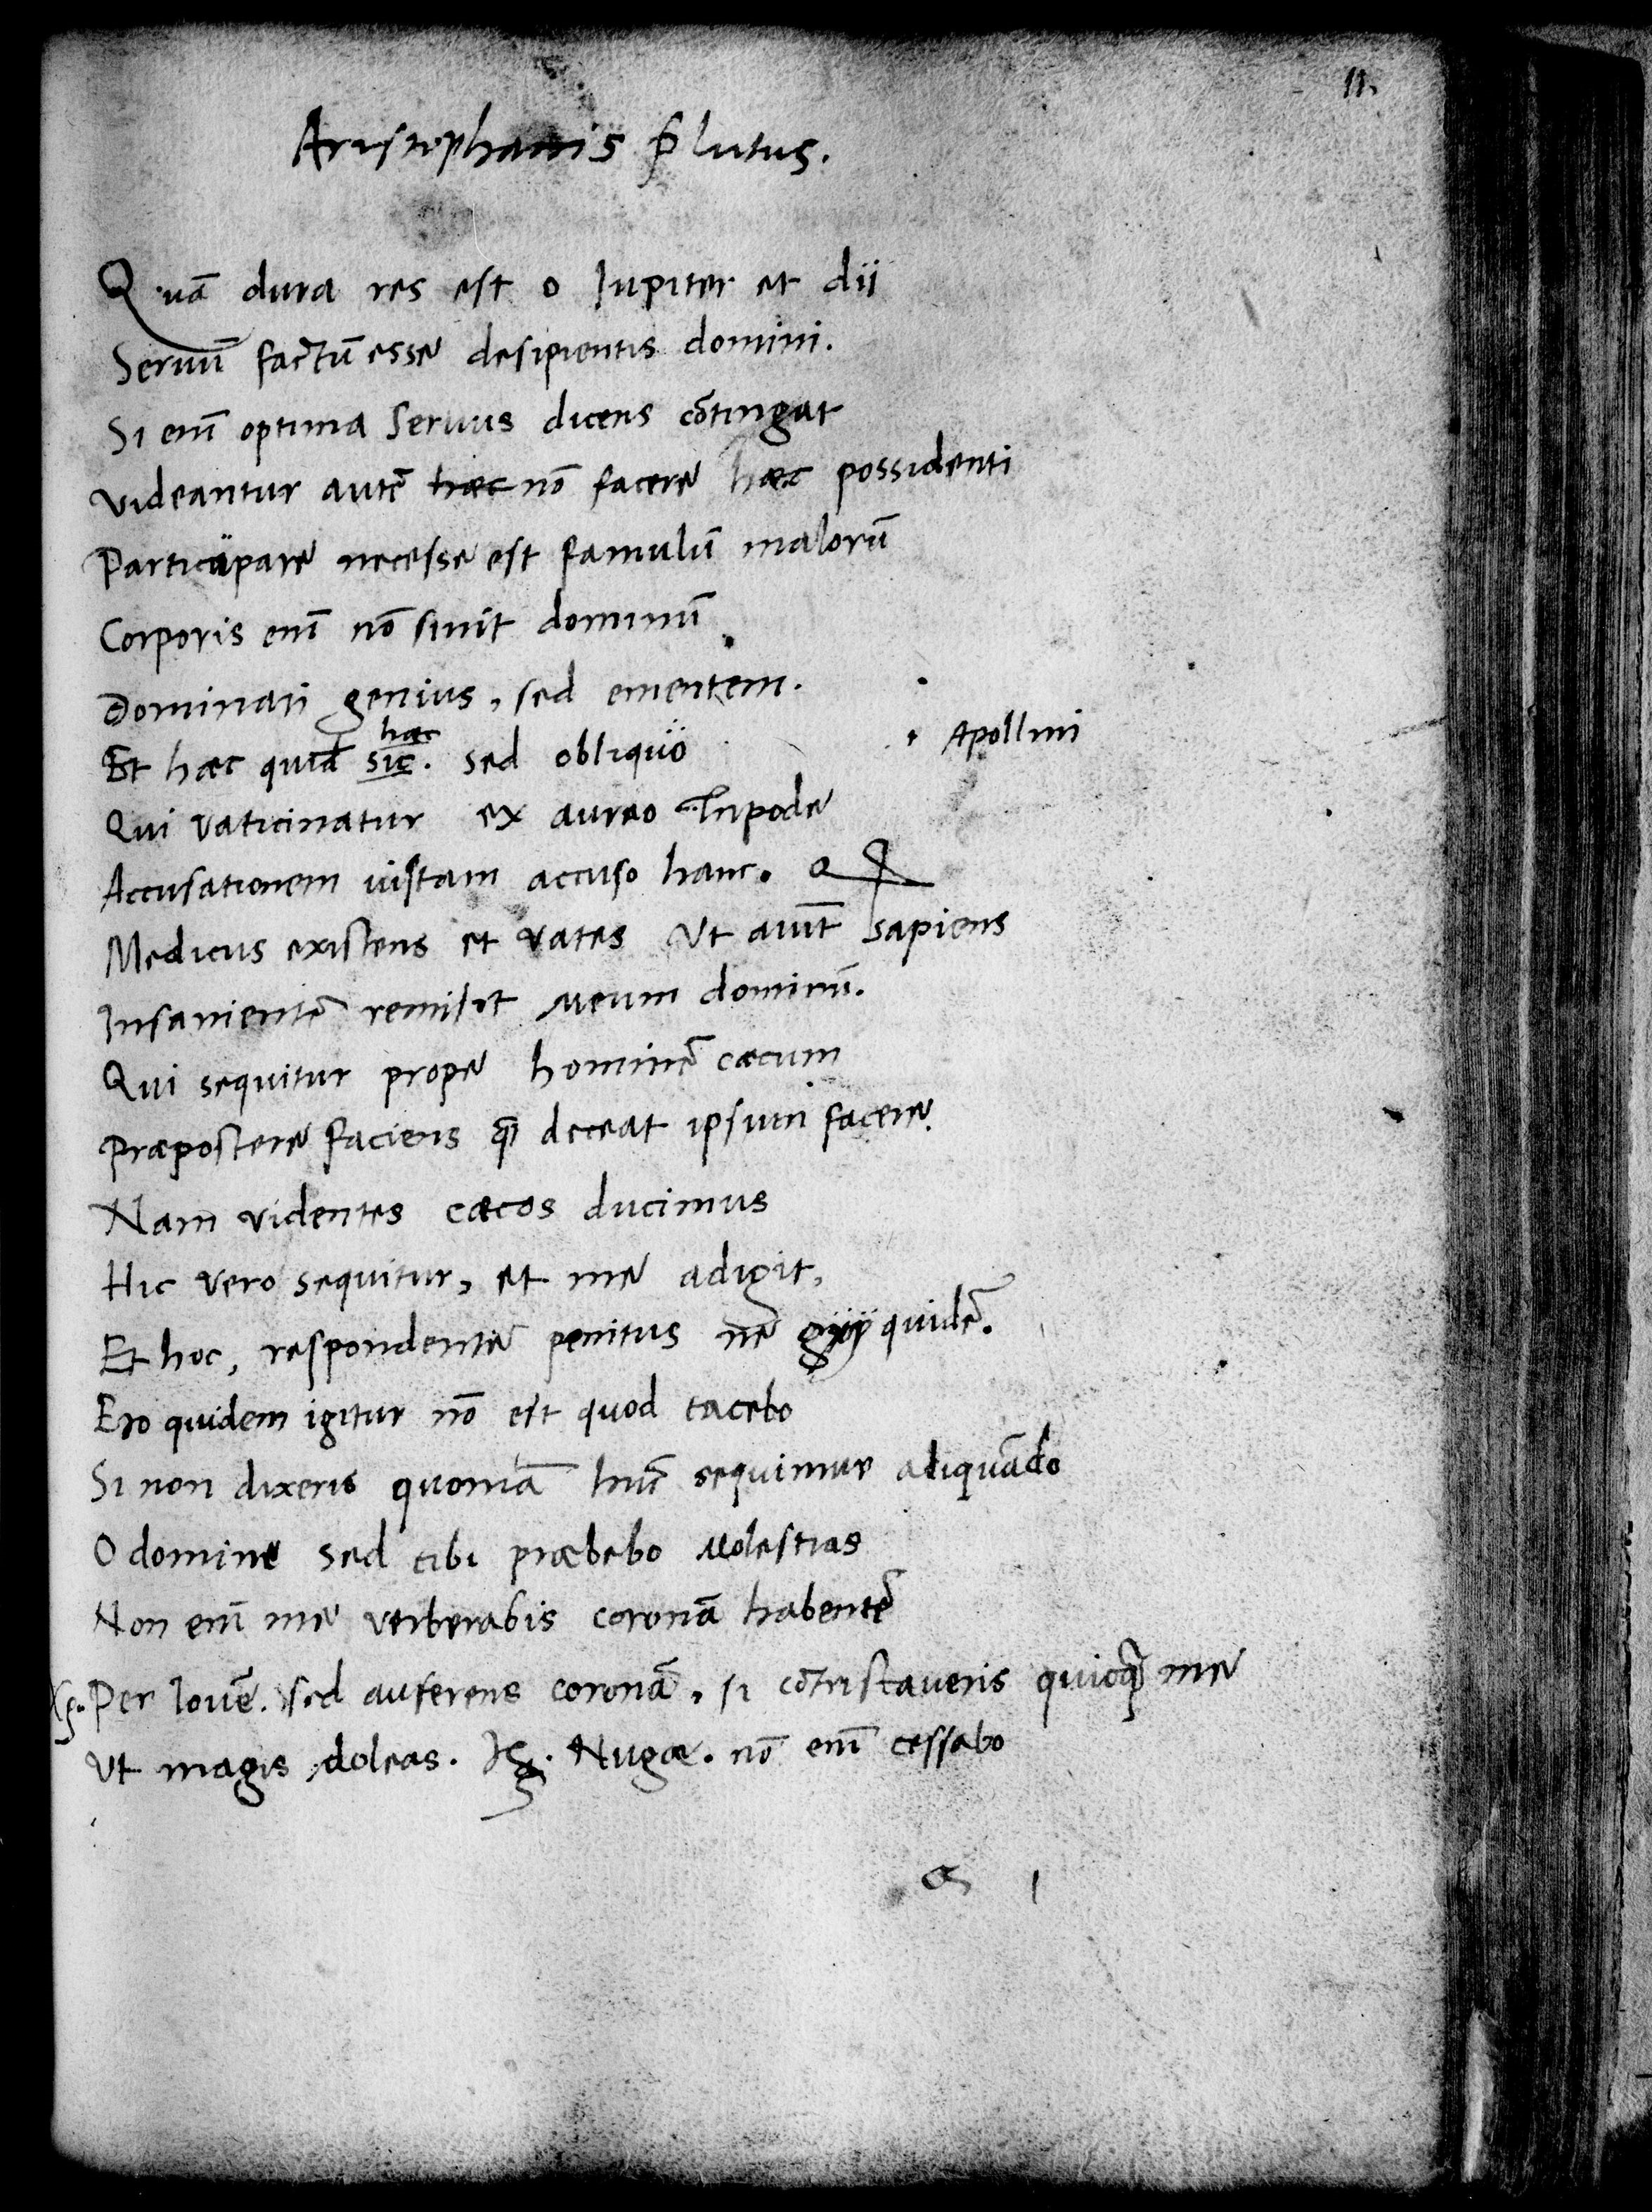 11.
Aristophanis Plutus.
Quā dura res est o Iupiter et dii
Seruū factū esse desipientis domini.
Si enī optima Seruus dicens cōtingat
videantur autē haec nō facere haec possidenti
Participare necesse est famulū malorū
Corporis enī nō sinit dominū
Dominari genius, sed ementem.
haec
Et haec quidē sic. sed obliquo · Apollini
Qui vaticinatur ex aureo Tripode
Accusationem iustam accuso hanc. Q
Medicus existens et vates Vt aiūt sapiens
Insanientē remisit Meum dominū.
Qui sequitur prope hominē caecum
Praepostere faciens q̄ deceat ipsum facere.
Nam videntes caecos ducimus
Hic vero sequitur, et me adigit,
Et hoc, respondente penitus ne gry quidē.
Ego quidem igitur nō est quod tacebo
Si non dixeris quoniā hūc sequimur aliquādo
O domine sed tibi praebebo Molestias
Non enī me verberabis coronā habentē
Xρ. Per Iouē. sed auferens coronā, si cōtristaueris quicq̄ me
Vt magis doleas. Kα. Nugae. nō enī cessabo
a 1